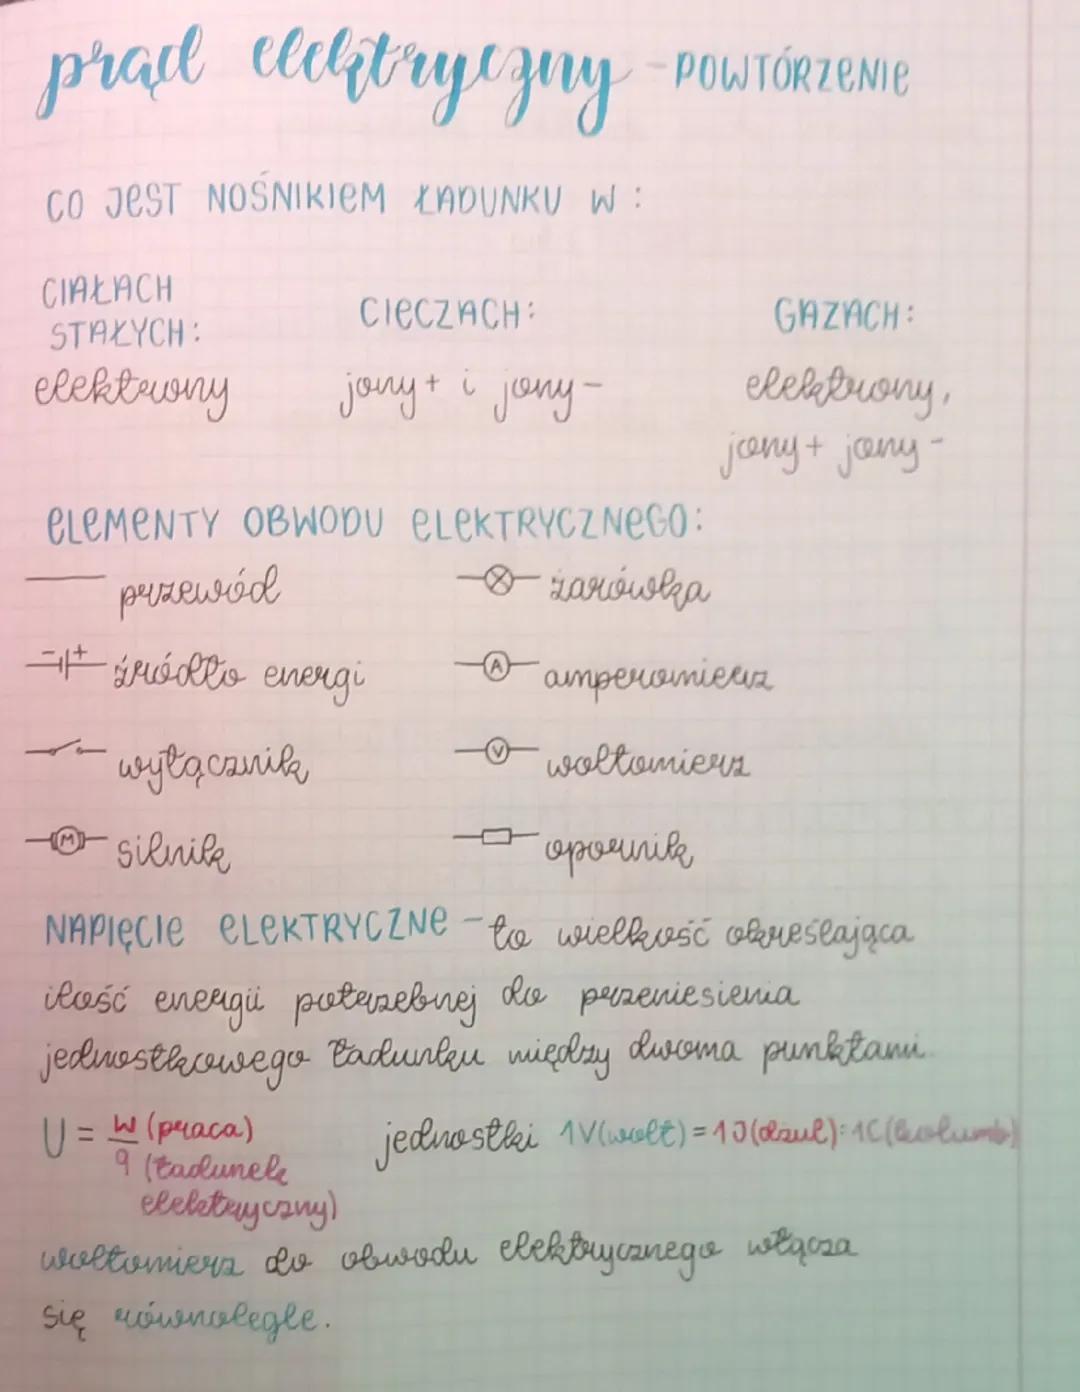 prąd elektryczny - POWTÓRZENIE
CO JEST NOŚNIKIEM ŁADUNKU W:
CIAŁACH
STAŁYCH:
elektrony
CIECZACH:
jony+ i jony-
GAZACH:
elektrony,
jony+ jony-
ELEMENTY OBWODU ELEKTRYCZNEGO:
przewód
żarówka
- + źródło energi
A amperomierz
wyłącznik
V woltomierz
M silnik
opornik
NAPIĘCIE ELEKTRYCZNE - to wielkość określająca
ilość energii potrzebnej do przeniesienia
jednostkowego ładunku między dwoma punktami.
U = W (praca)
q (ładunek
elektryczny)
jednostki 1V(wolt) = 1J(dżul): 1C(kolumb)
woltomierz do obwodu elektrycznego włącza
się równolegle.